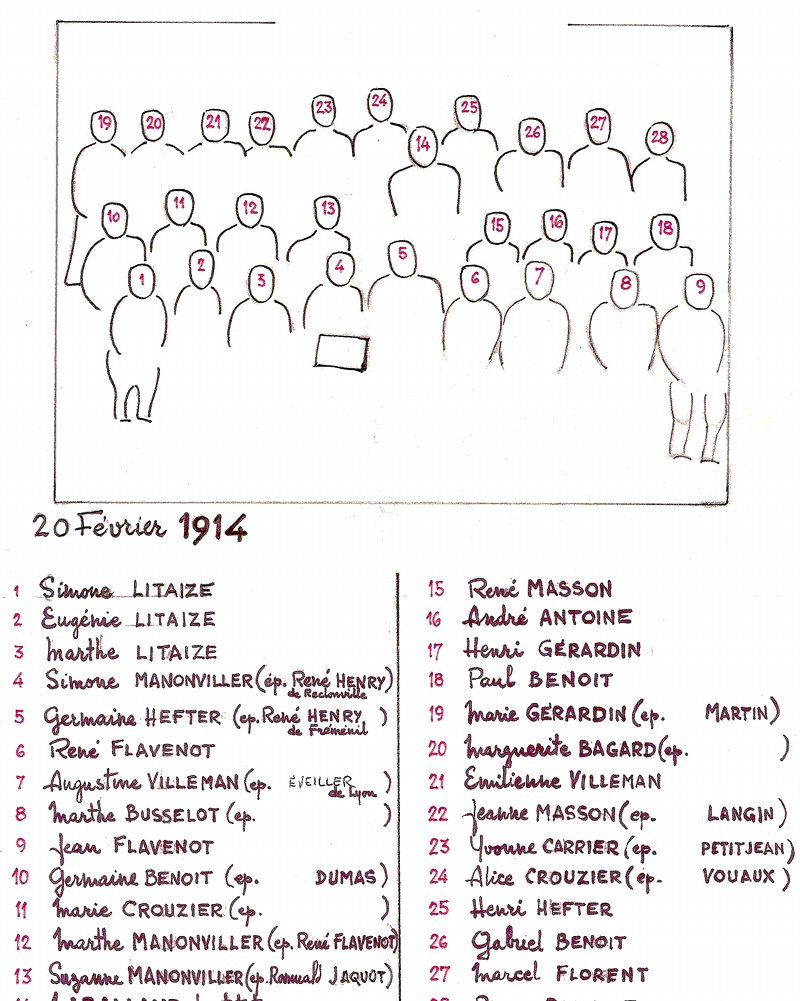 23 24 25
19 20 21 22 14 26 27 28
10 11 12 13 15 16 17 18
1 2 3 4 5 6 7 8 9
20 Février 1914
1 Simone LITAIZE
2 Eugénie LITAIZE
3 Marthe LITAIZE
4 Simone MANONVILLER (ép. René HENRY)
de Reclonville
5 Germaine HEFTER (ep. René HENRY )
de Fréménil
6 René FLAVENOT
7 Augustine VILLEMAN (ep. ÉVEILLER )
de Lyon
8 Marthe BUSSELOT (ep. )
9 Jean FLAVENOT
10 Germaine BENOIT (ep. DUMAS)
11 Marie CROUZIER (ep. )
12 Marthe MANONVILLER (ep. René FLAVENOT)
13 Suzanne MANONVILLER (ep. Romuald JAQUOT)
15 René MASSON
16 André ANTOINE
17 Henri GÉRARDIN
18 Paul BENOIT
19 Marie GÉRARDIN (ep. MARTIN)
20 Marguerite BAGARD (ep. )
21 Emilienne VILLEMAN
22 Jeanne MASSON (ep. LANGIN)
23 Yvonne CARRIER (ep. PETITJEAN)
24 Alice CROUZIER (ép. VOUAUX )
25 Henri HEFTER
26 Gabriel BENOIT
27 Marcel FLORENT